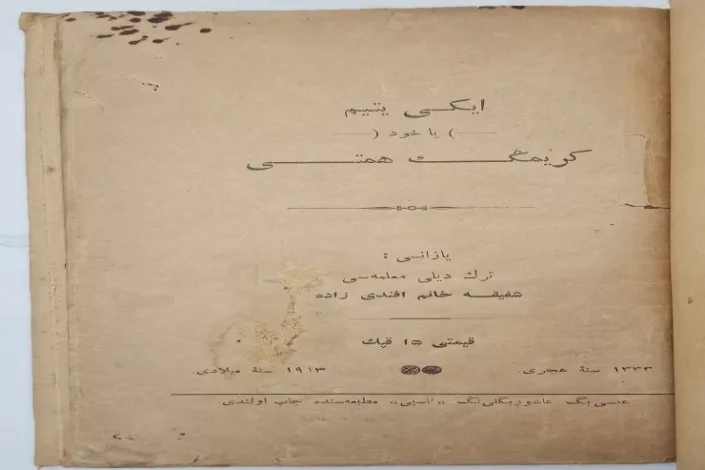 ایکی یتیم
( یاخود )
کویمک همتی
یازانی :
ترك دیلی معلمه‌سی
شفیقه خانم افندی زاده
قیمتی ١٥ قپك
١٣٣٣ سنۀ هجری. ١٩١٣ سنۀ میلادی.
عیسی بگ عاشوربگلی نگ ,,ناسیی,, مطبعه‌سنده چاپ اولندی